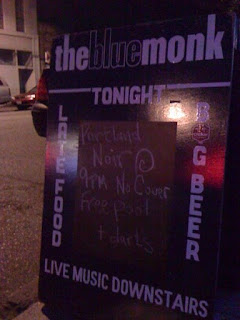 thebluemonk
TONIGHT
LATE FOOD
Portland
Noir @
9PM No Cover
free pool
+ darts
BIG BEER
LIVE MUSIC DOWNSTAIRS